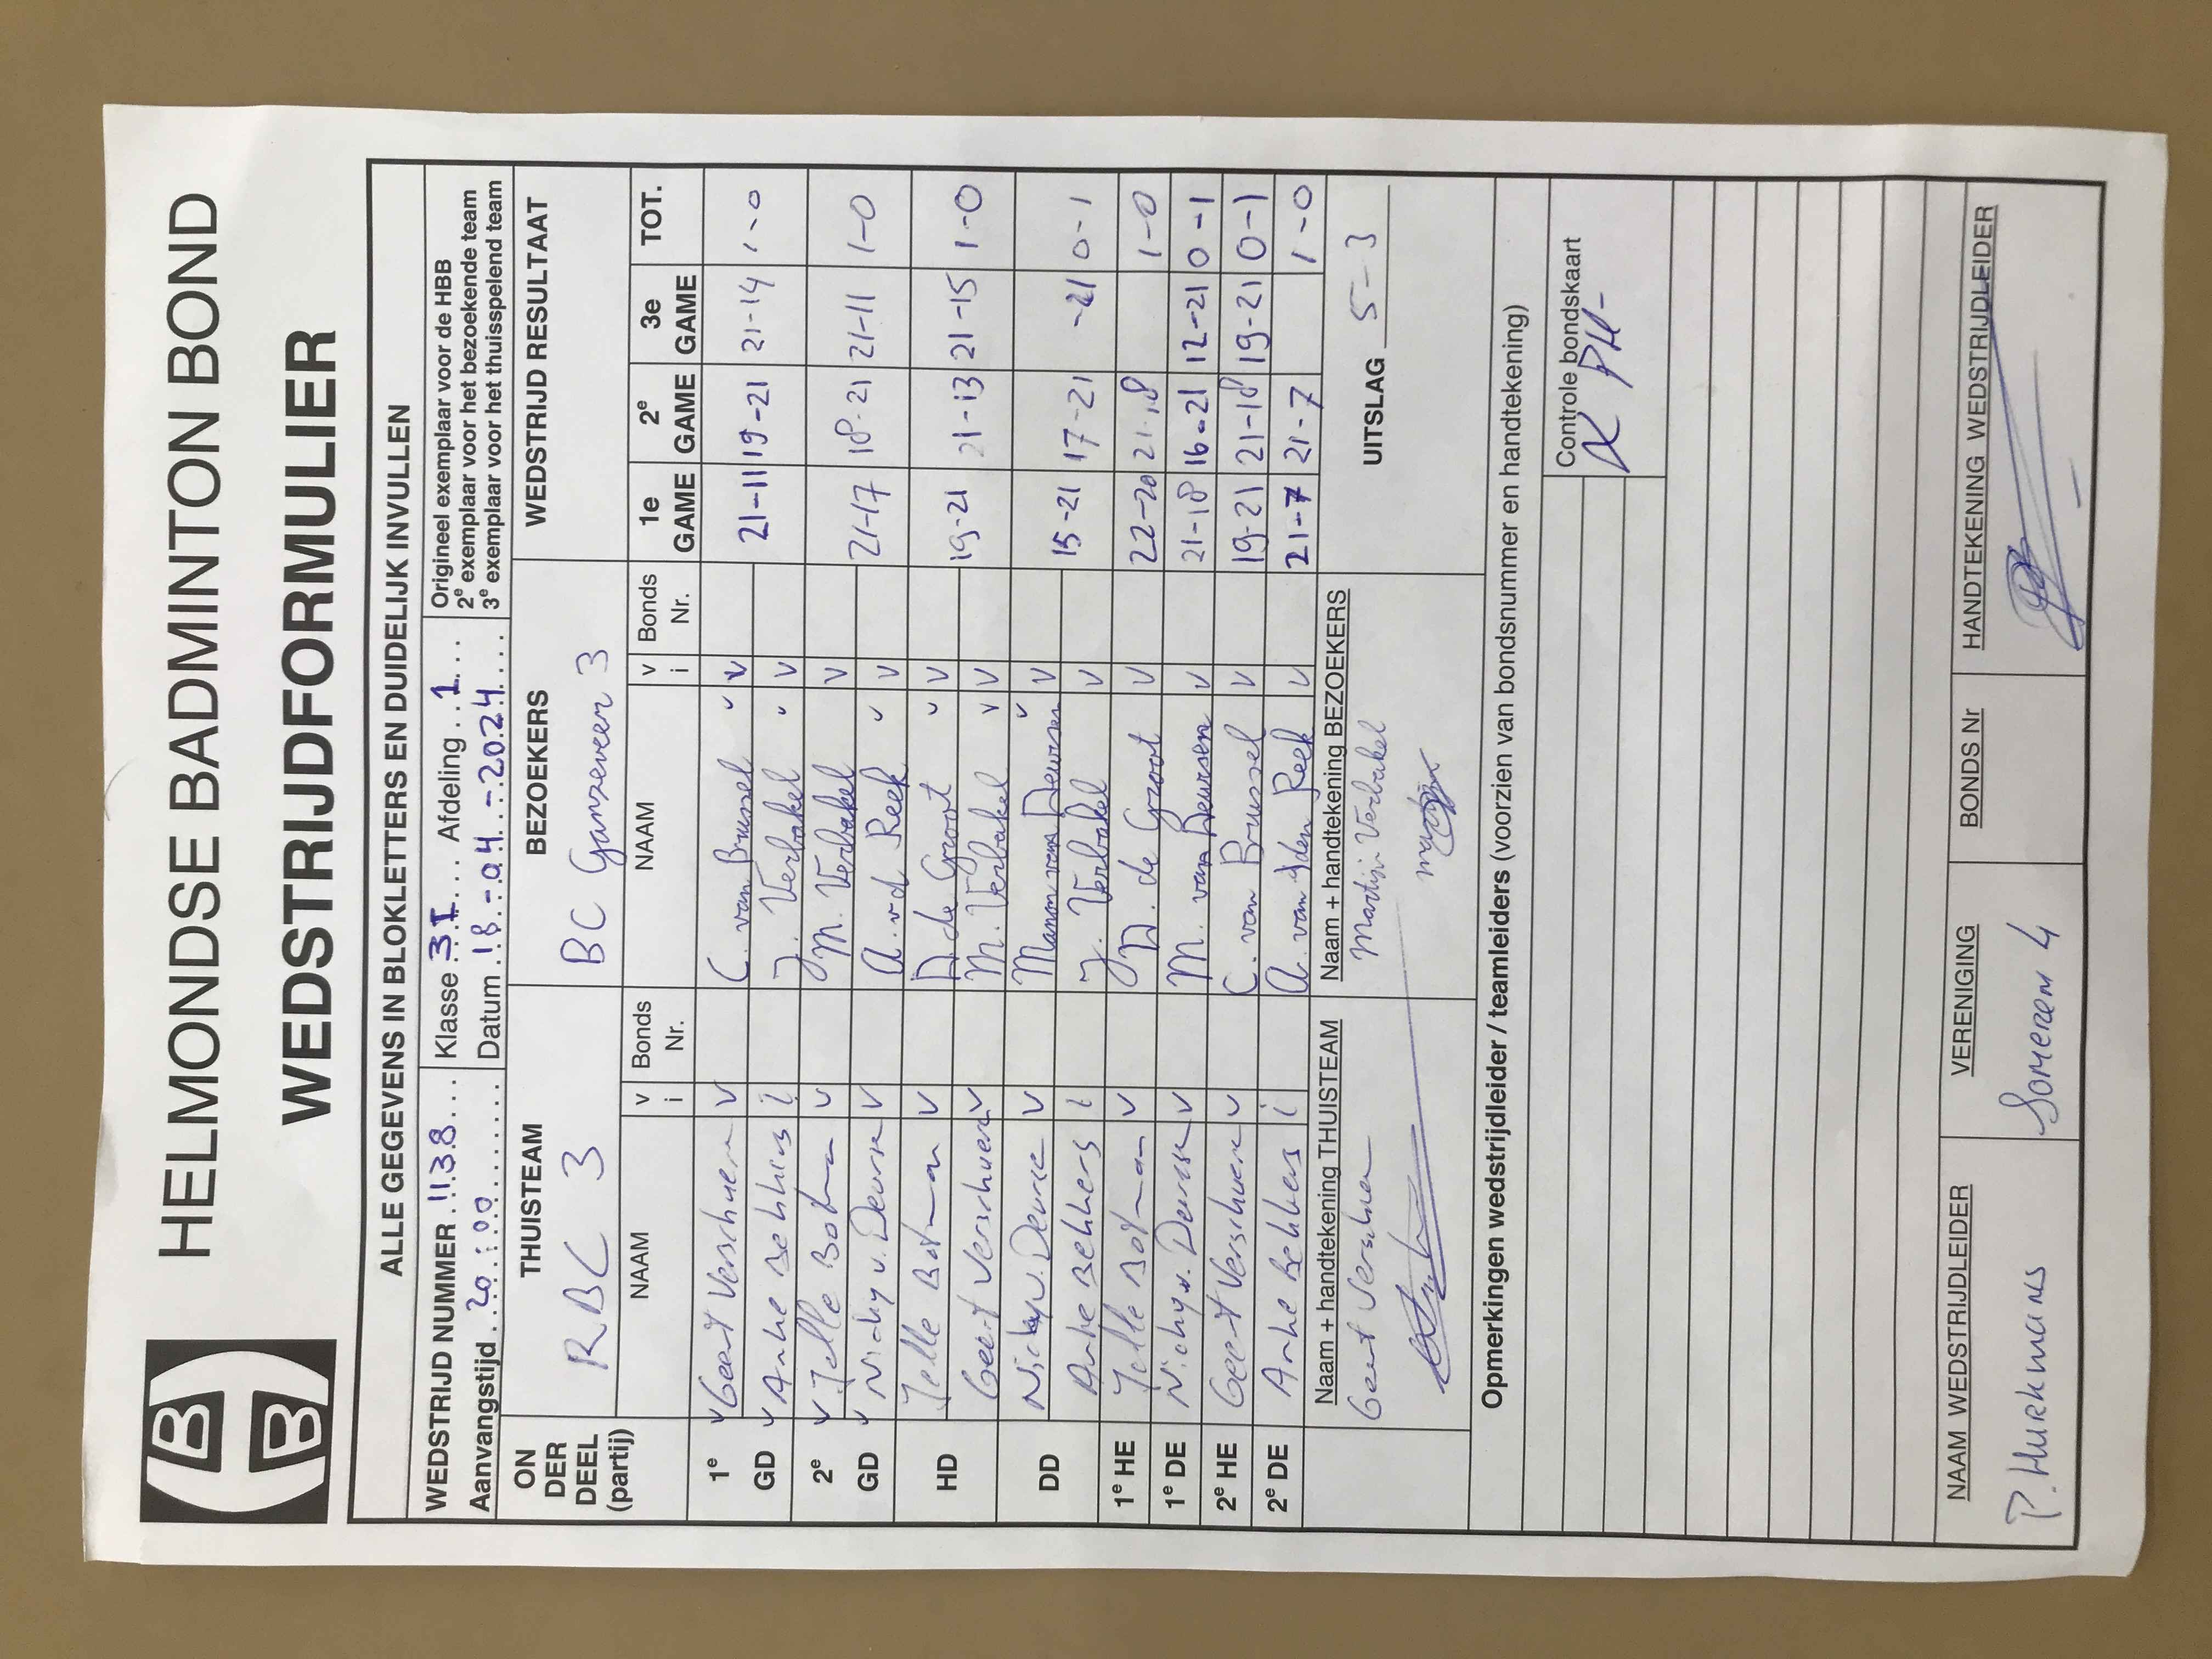 HELMONDSE BADMINTON BOND
WEDSTRIJDFORMULIER
ALLE GEGEVENS IN BLOKLETTERS EN DUIDELIJK INVULLEN
WEDSTRIJD NUMMER 1138 Klasse 3I Afdeling 1 Origineel exemplaar voor de HBB
2e exemplaar voor het bezoekende team
Aanvangstijd 20:00 Datum 18-04-2024 3e exemplaar voor het thuisspelend team
ON DER DEEL (partij) THUISTEAM BEZOEKERS WEDSTRIJD RESULTAAT
RBC 3 BC Ganzeveer 3
NAAM v i Bonds Nr. NAAM v i Bonds Nr. 1e GAME 2e GAME 3e GAME TOT.
1e GD v Geert Verschuren v C. van Brussel v v 21-11 19-21 21-14 1-0
v Anke Bekkers i J. Verbakel v v
2e GD v Jelle Botman v M. Verbakel v 21-17 18-21 21-11 1-0
v Nicky v. Deurse v A. vd Reek v v
HD Jelle Botman v D de Groot v v 19-21 21-13 21-15 1-0
Geert Verschuren v M. Verbakel v v
DD Nicky v. Deurse v Manon van Deursen v v 15-21 17-21 -21 0-1
Anke Bekkers i J. Verbakel v
1e HE Jelle Botman v D. de Groot v 22-20 21-18 1-0
1e DE Nicky v. Deurse v M. van Deursen v 21-18 16-21 12-21 0-1
2e HE Geert Verschuren v C. van Brussel v 19-21 21-18 19-21 0-1
2e DE Anke Bekkers i A. van den Reek v 21-7 21-7 1-0
Naam + handtekening THUISTEAM Naam + handtekening BEZOEKERS
Geert Verschuren Martijn Verbakel UITSLAG 5-3
Opmerkingen wedstrijdleider / teamleiders (voorzien van bondsnummer en handtekening)
Controle bondskaart
PH-
NAAM WEDSTRIJDLEIDER VERENIGING BONDS Nr HANDTEKENING WEDSTRIJDLEIDER
P. Hurkmans Someren 4